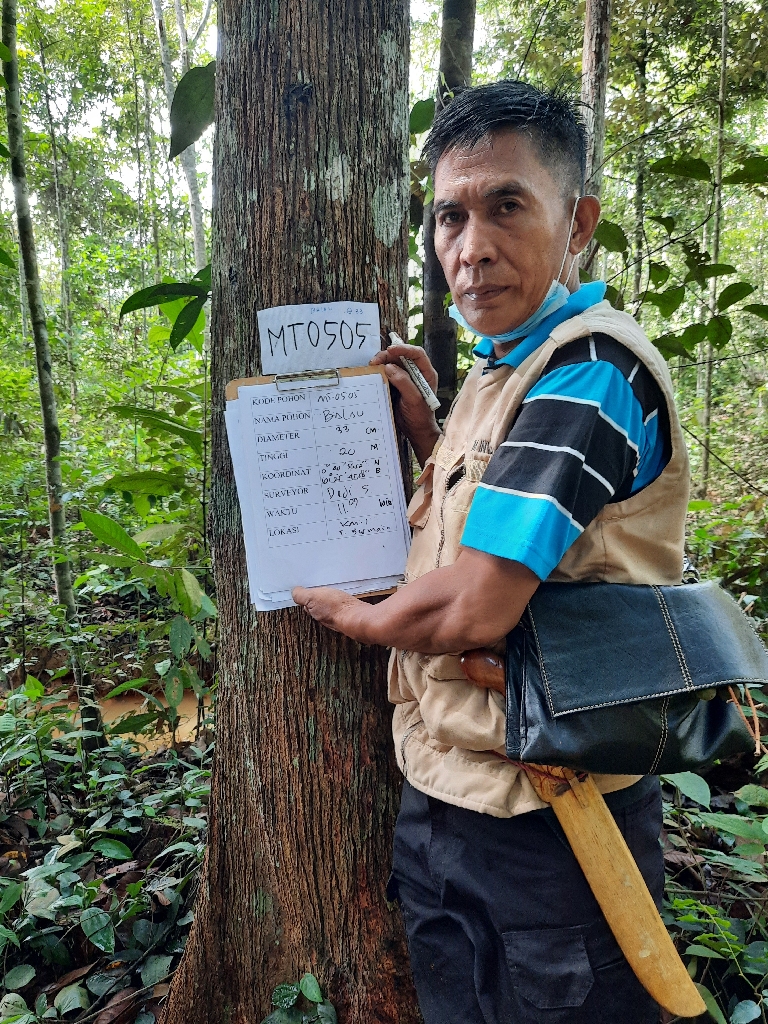 MT0505
KODE POHON MT0505
NAMA POHON Balau
DIAMETER 33 CM
TINGGI 20 M
KOORDINAT
SURVEYOR Dedi S
WAKTU 11.09 WIB
LOKASI